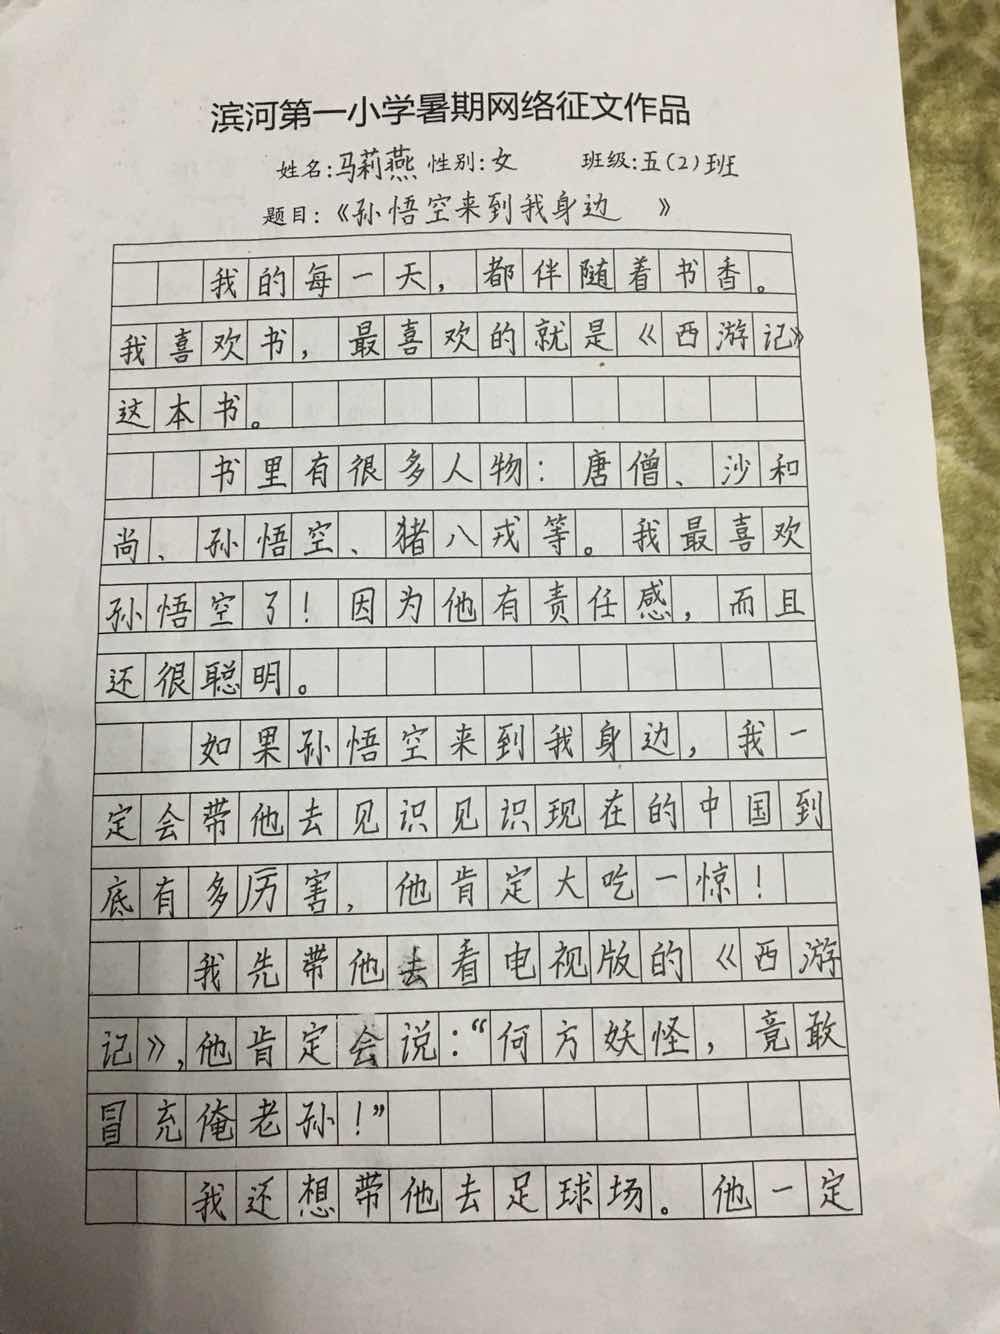 滨河第一小学暑期网络征文作品
姓名:马莉燕 性别:女 班级:五(2)班
题目:《孙悟空来到我身边 》
我的每一天，都伴随着书香。
我喜欢书，最喜欢的就是《西游记》
这本书。
书里有很多人物：唐僧、沙和
尚、孙悟空、猪八戒等。我最喜欢
孙悟空了！因为他有责任感，而且
还很聪明。
如果孙悟空来到我身边，我一
定会带他去见识见识现在的中国到
底有多厉害，他肯定大吃一惊！
我先带他去看电视版的《西游
记》，他肯定会说：“何方妖怪，竟敢
冒充俺老孙！”
我还想带他去足球场。他一定